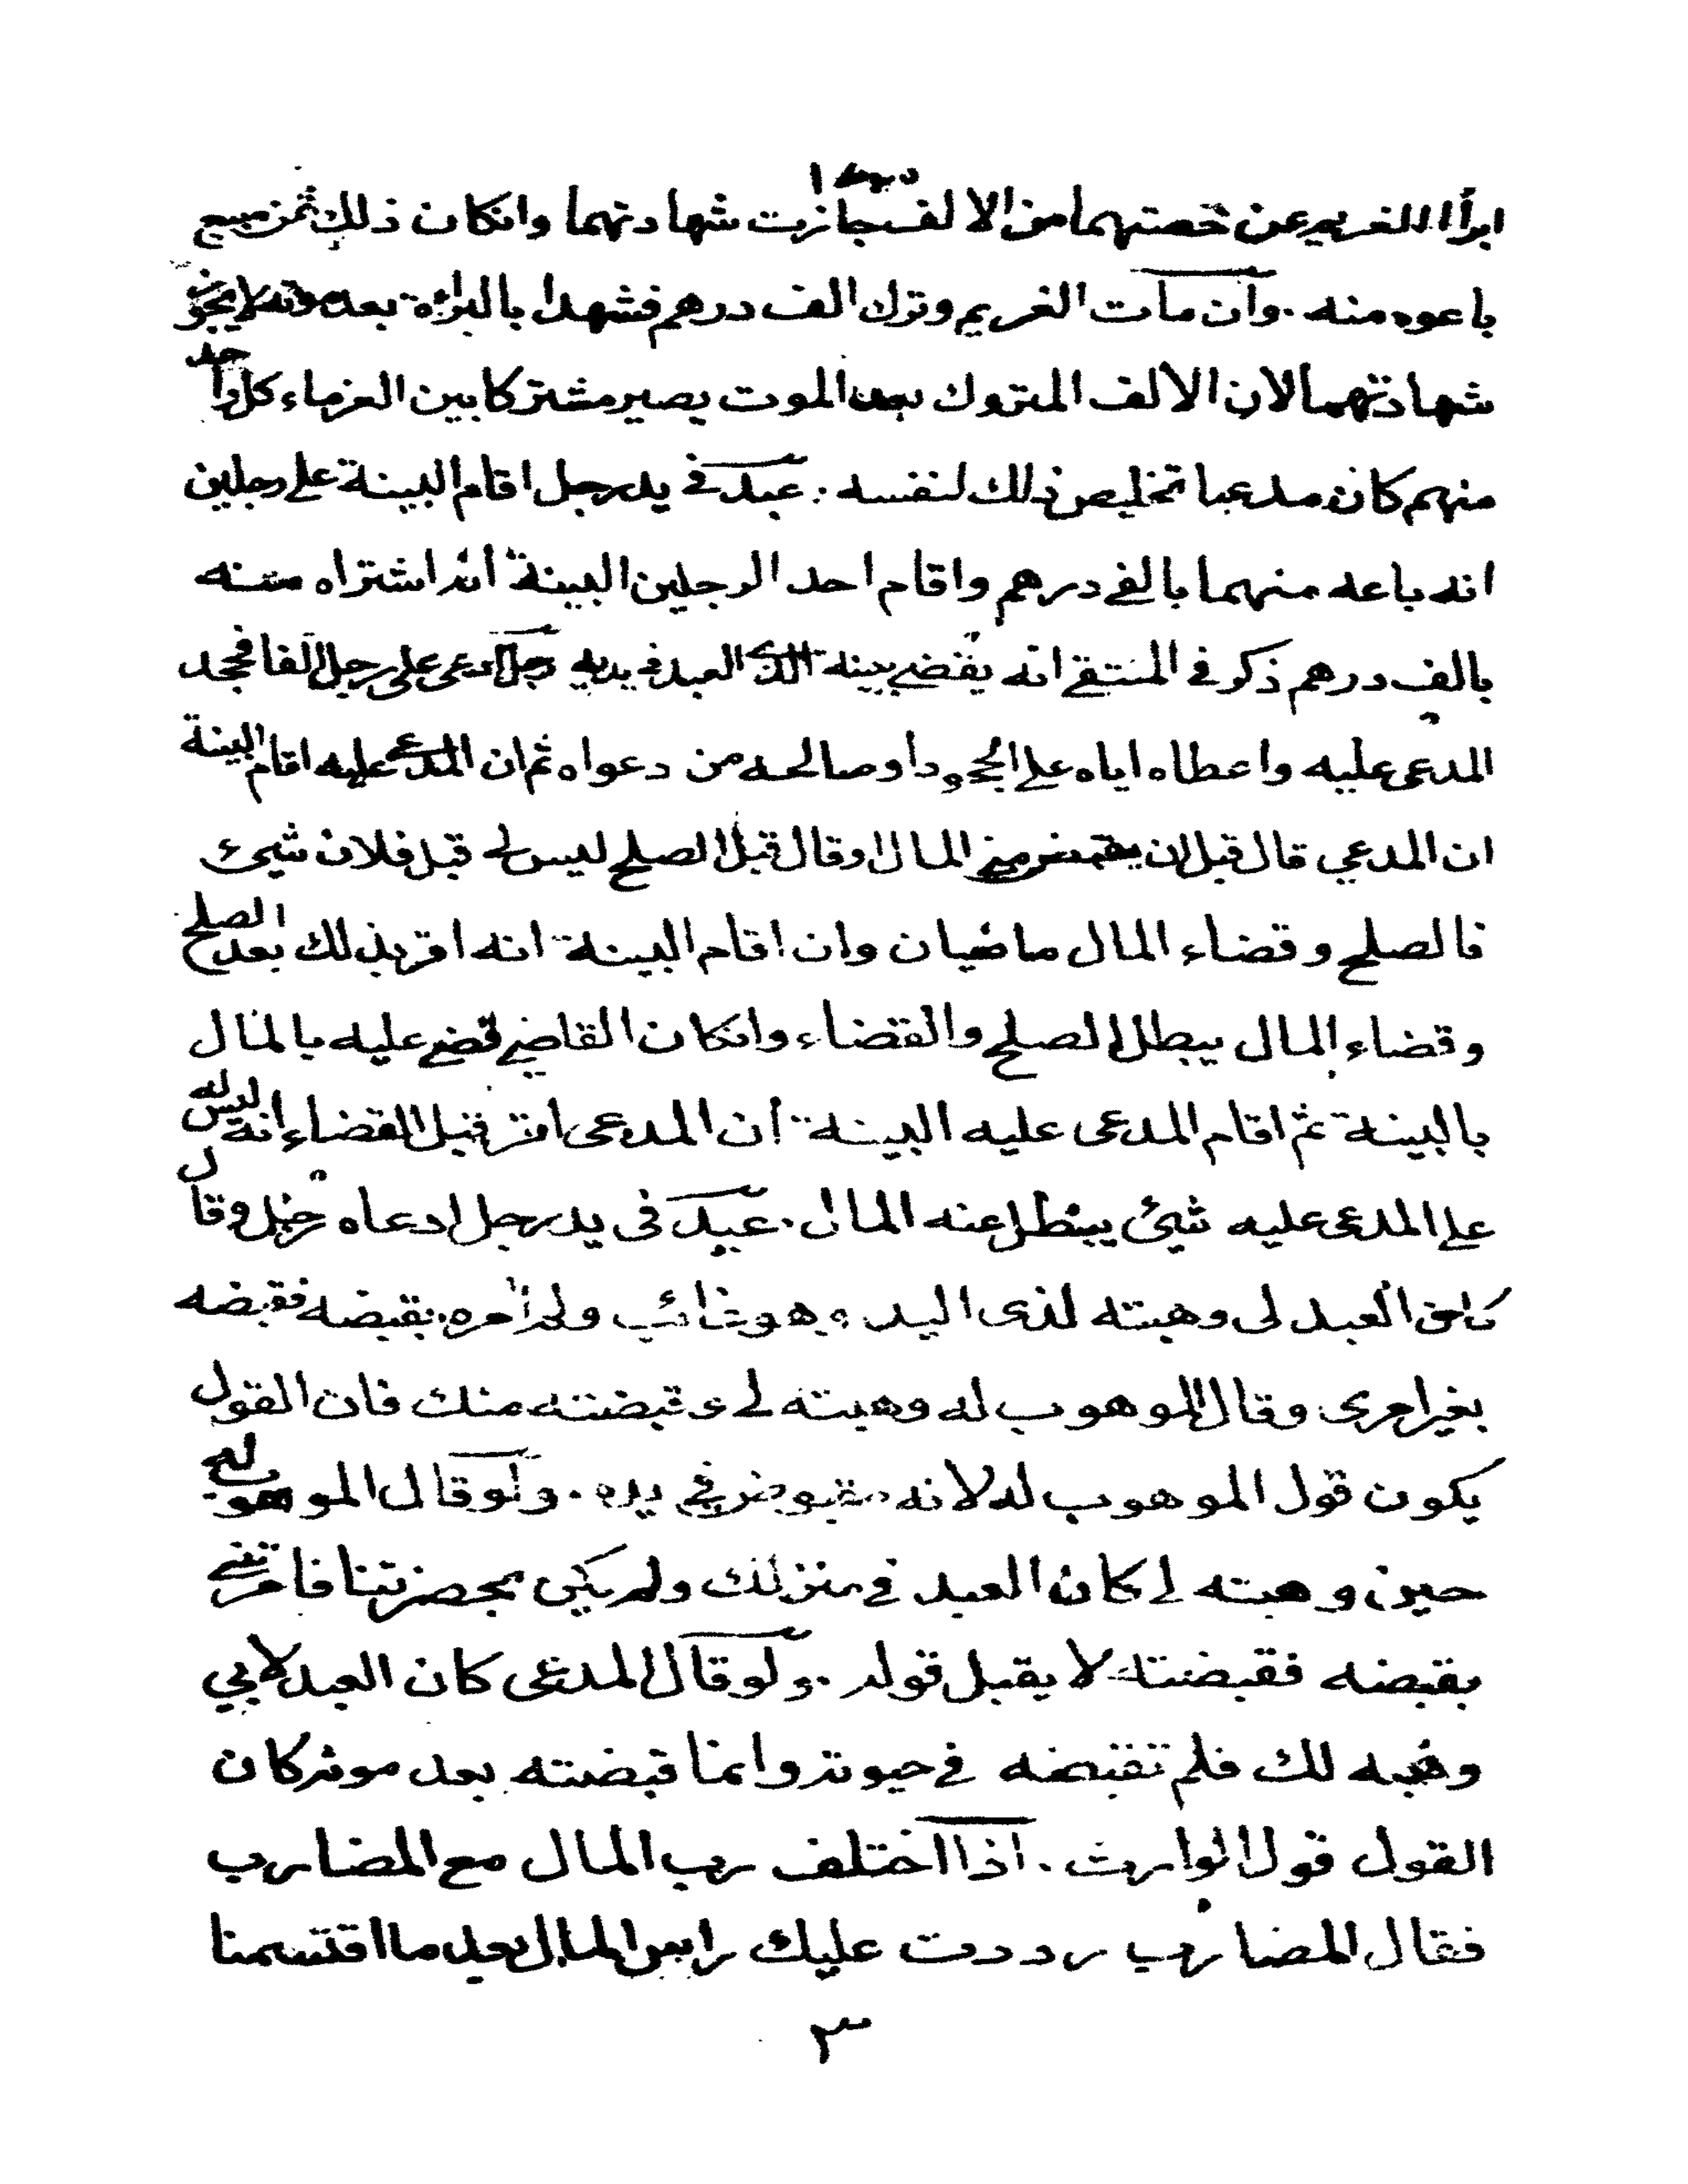 ابرأا الغريم عن حصتهما من الالف جازت شهادتهما وانكان ذلك ثمن مبيع
باعوه منه . وان مات الغريم وترك الف درهم فشهدا بالبرأة بعد موته لا يجوز
شهادتهما لان الالف المتروك بعد الموت يصير مشتركا بين الغرماء كل واحد
منهم كان مدعيا تخليص ذلك لنفسه . عبد في يد رجل اقام البينة على رجلين
انه باعه منهما بالفي درهم واقام احد الرجلين البينة انه اشتراه منه
بالف درهم ذكر في المنتقى انه يقضى ببينة الذي العبد في يديه رجل ادعى على رجل الفا فجحد
المدعى عليه واعطاه اياه على الجحود او صالحه من دعواه ثم ان المدعى عليه اقام البينة
ان المدعي قال قبل ان يقبض منى المال او قال قبل الصلح ليس لي قبل فلان شيئ
فالصلح وقضاء المال ماضيان وان اقام البينة انه اقر بذلك بعد الصلح
وقضاء المال يبطل الصلح والقضاء وانكان القاضي قضى عليه بالمال
بالبينة ثم اقام المدعى عليه البينة ان المدعى اقر قبل القضاء انه ليس له
على المدعى عليه شيئ يبطل عنه المال . عبد فى يد رجل ادعاه رجل وقال
كان العبد لى وهبته لذى اليد وهو غائب ولم أمره بقبضه فقبضه
بغير امرى وقال الموهوب له وهبته لي وقبضته منك فان القول
يكون قول الموهوب له لانه مقبوض في يده . ولو قال الموهوب له
حين وهبته لي كان العبد في منزلك ولم يكن بحضرتنا فامرتني
بقبضه فقبضته لا يقبل قوله . ولو قال المدعى كان العبد لابي
وهبه لك فلم تقبضه في حيوته وانما قبضته بعد موته كان
القول قول الوارث . اذا اختلف رب المال مع المضارب
فقال المضارب رددت عليك راس المال بعد ما اقتسمنا
٣